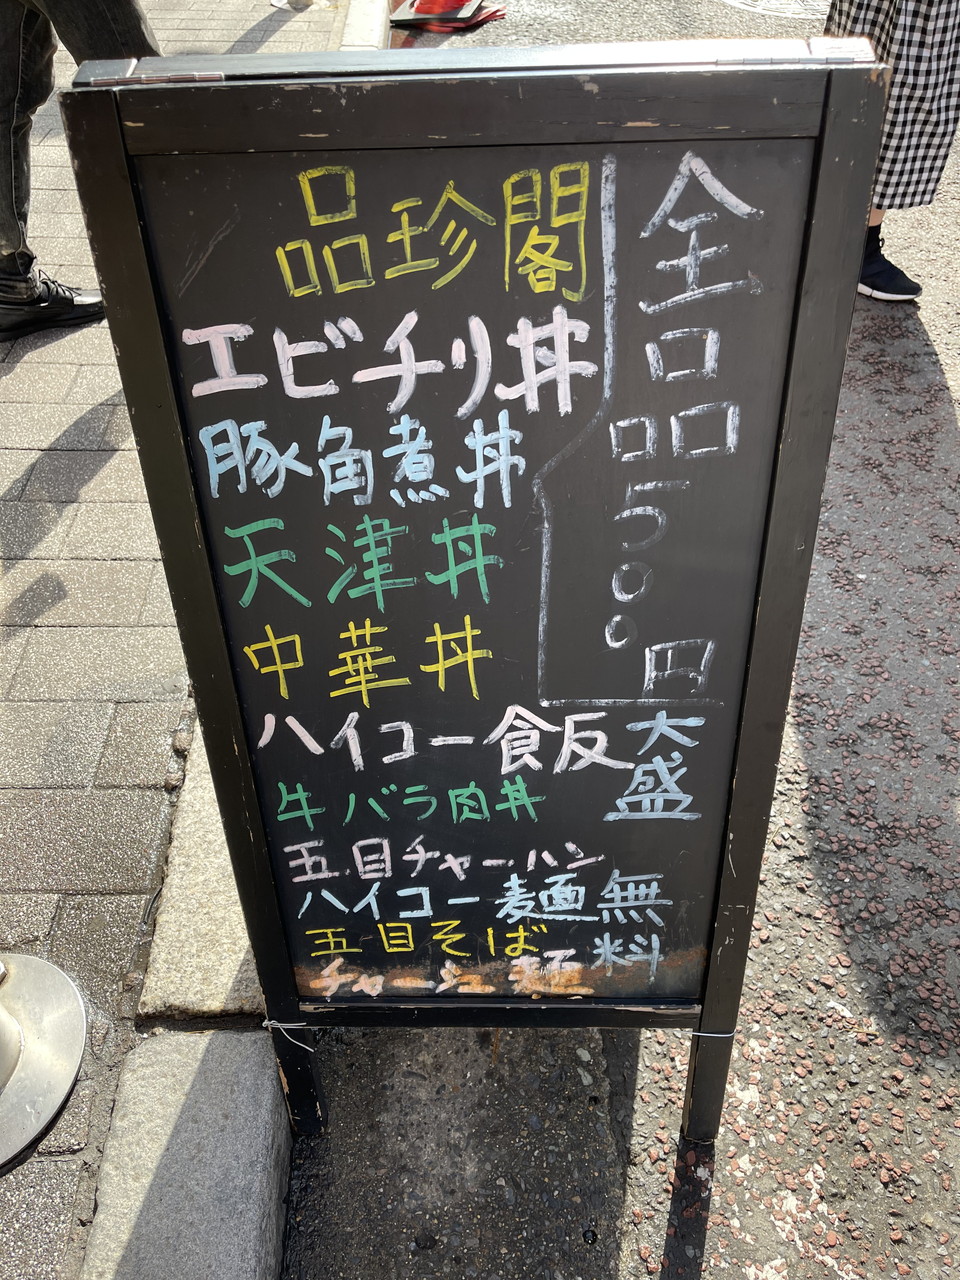 品珍閣
全品500円
エビチリ丼
豚角煮丼
天津丼
中華丼
ハイコー飯
牛バラ肉丼
大盛無料
五目チャーハン
ハイコー麺
五目そば
チャーシュー麺